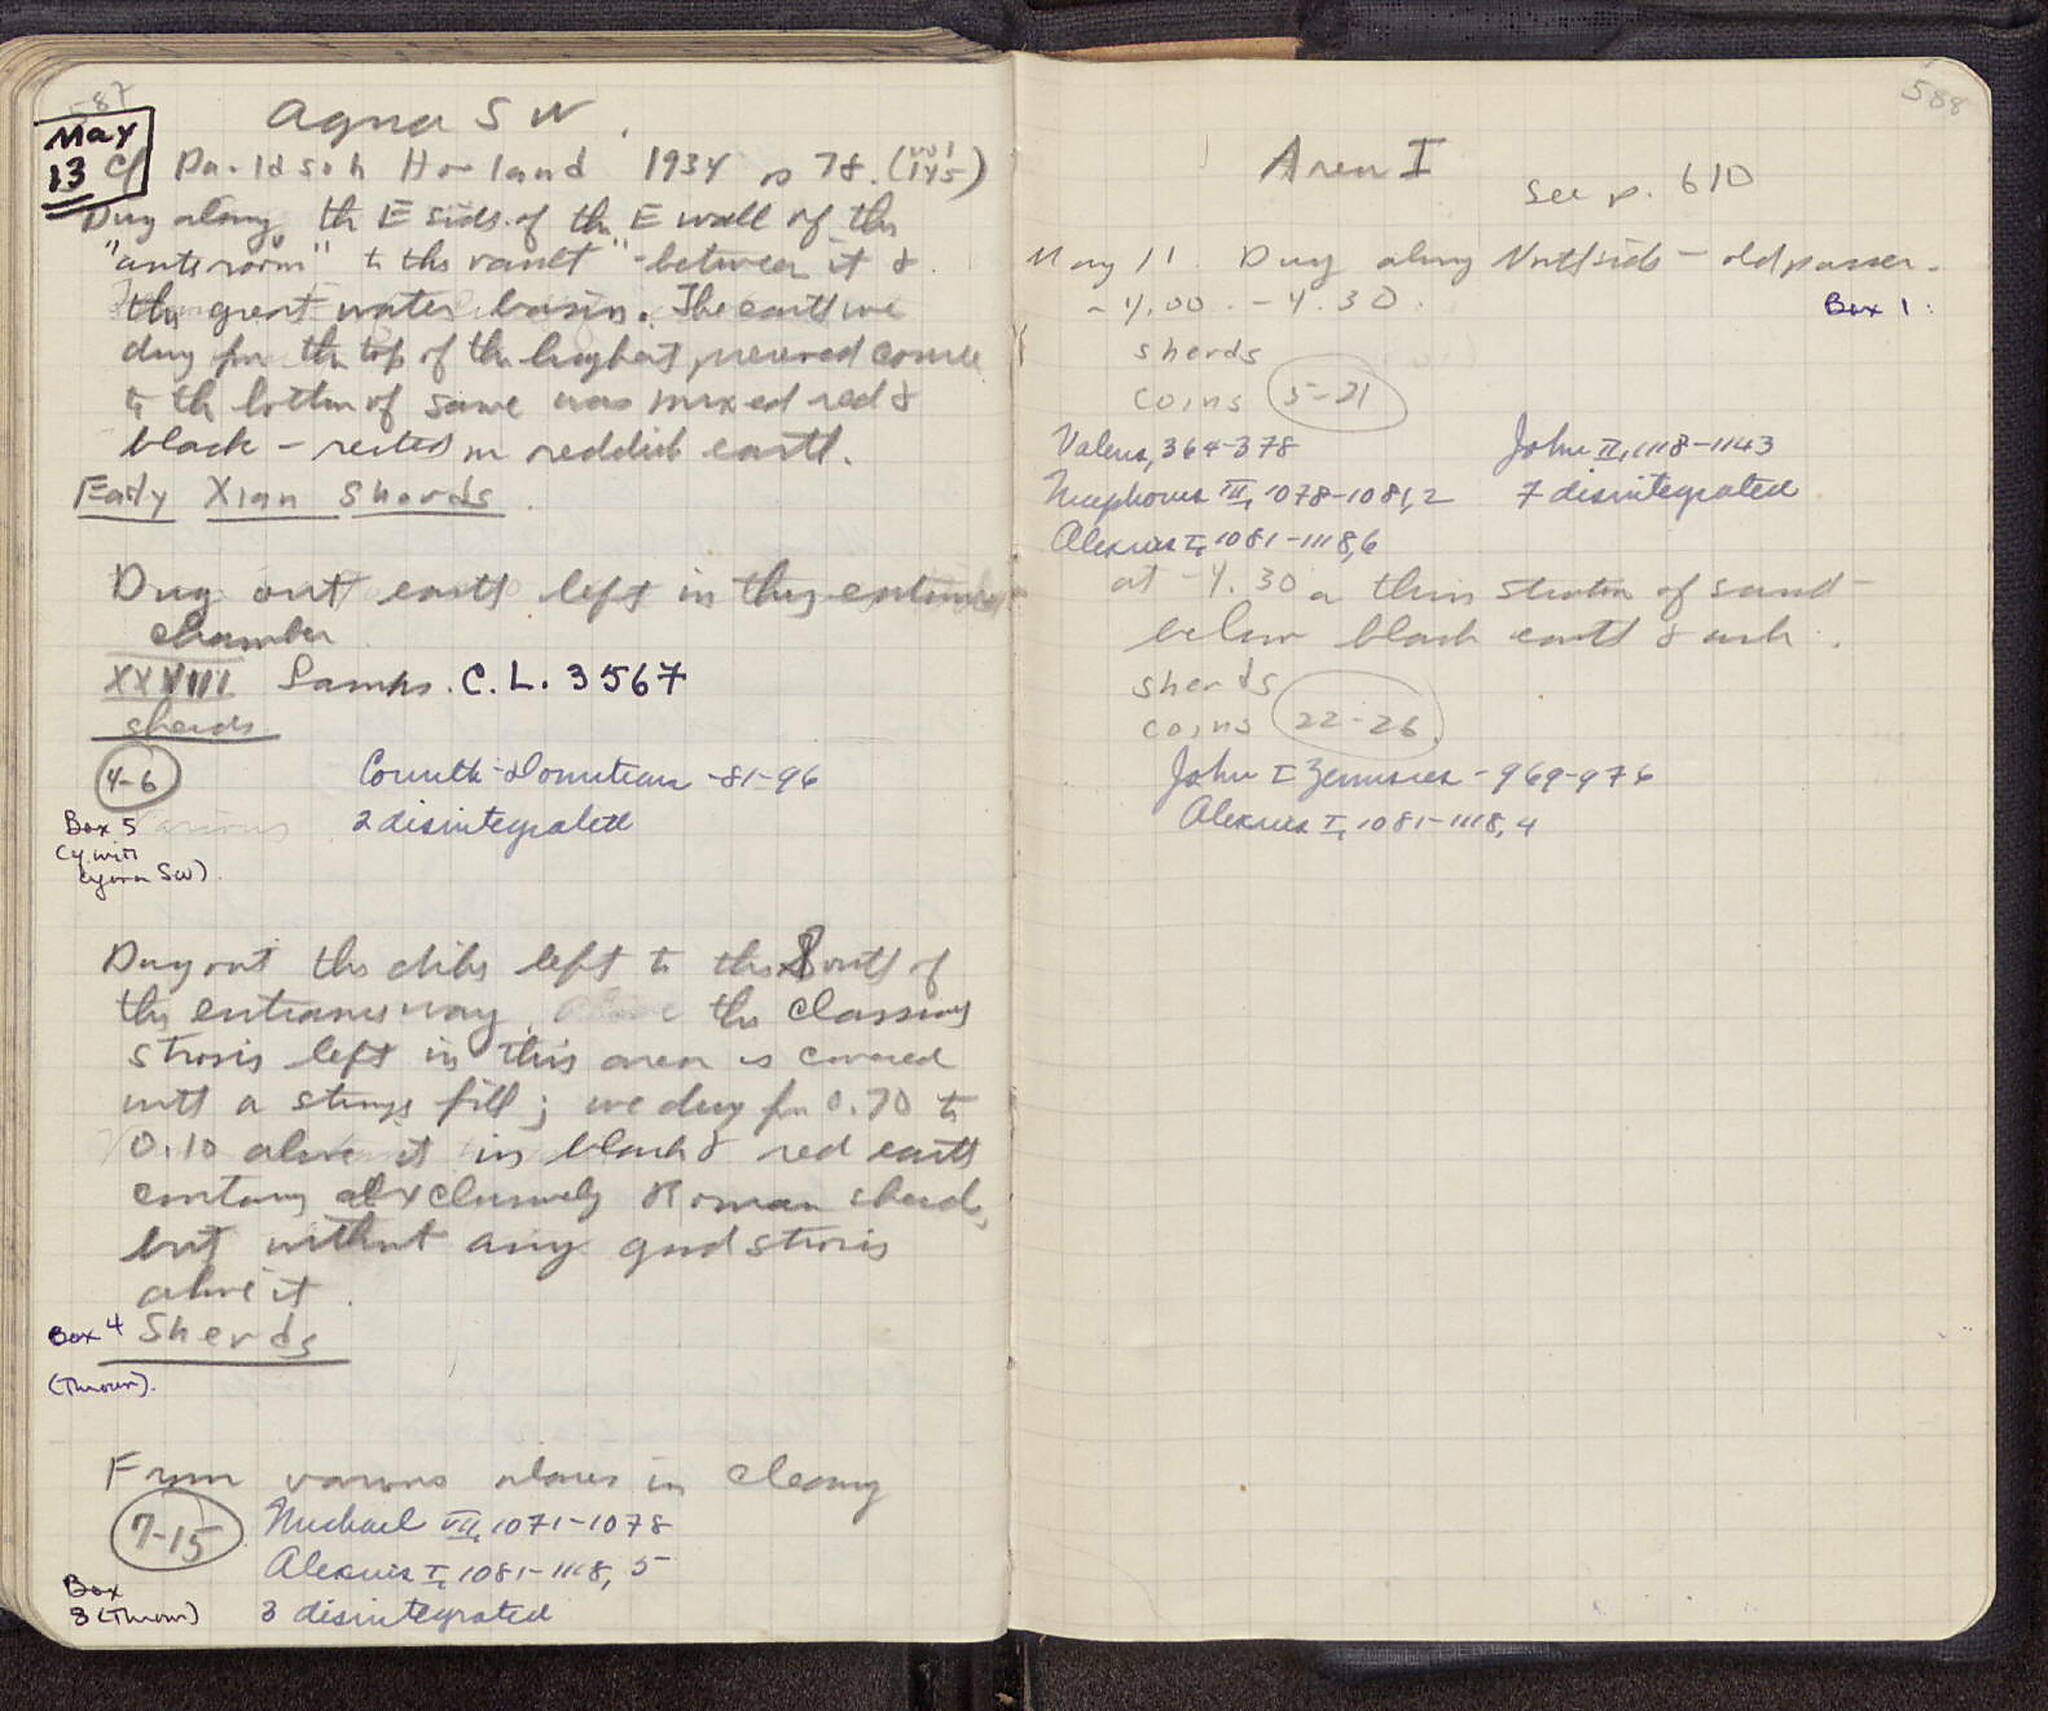 587
Agora SW.
May
13
Cf Davidson Howland 1934 p 78. (vol 145)
Dug along the E side of the E wall of the
"anteroom" to the vault" - between it &
the great water basin. The earth we
dug from the top of the highest preserved course
to the bottom of same was mixed red &
black - rested on reddish earth.
Early Xian Sherds.
Dug out earth left in the entrance
chamber
XXVIII Lamps. C.L. 3567
sherds
4-6 Corinth - Domitian - 81-96
Box 5 various 2 disintegrated
(y. with
Agora SW).
Dug out the dike left to the South of
the entrance way, above the classing
strosis left in this area is covered
with a stones fill; we dug from 0.70 to
0.10 above it in black & red earth
containing exclusively Roman sherds,
but without any good strosis
above it.
Box 4 Sherds
(Thrown).
From various places in cleaning
7-15 Michael VII, 1071-1078
Alexius I, 1081-1118, 5
Box
8 (Thrown) 3 disintegrated
588
Area I
see p. 610
May 11. Dug along North side - old passer.
-4.00 - -4.30.
Box 1:
sherds
coins 5-21
Valens, 364-378 John II, 1118-1143
Nicephorus III, 1078-1081, 2 7 disintegrated
Alexius I, 1081-1118, 6
at -4.30 a thin stratum of sand -
below black earth & ash.
sherds
coins 22-26.
John I Zimisces - 969-976
Alexius I, 1081-1118, 4